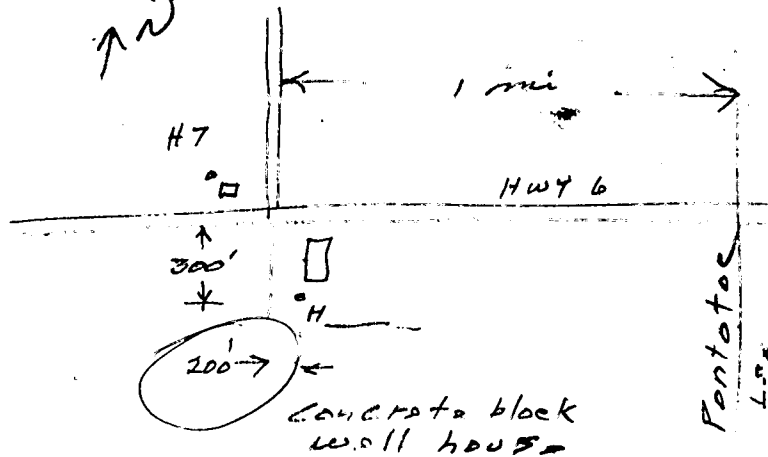 N
1 mi
H7
HWY 6
300'
H
200'
Concrete block
well house
Pontotoc